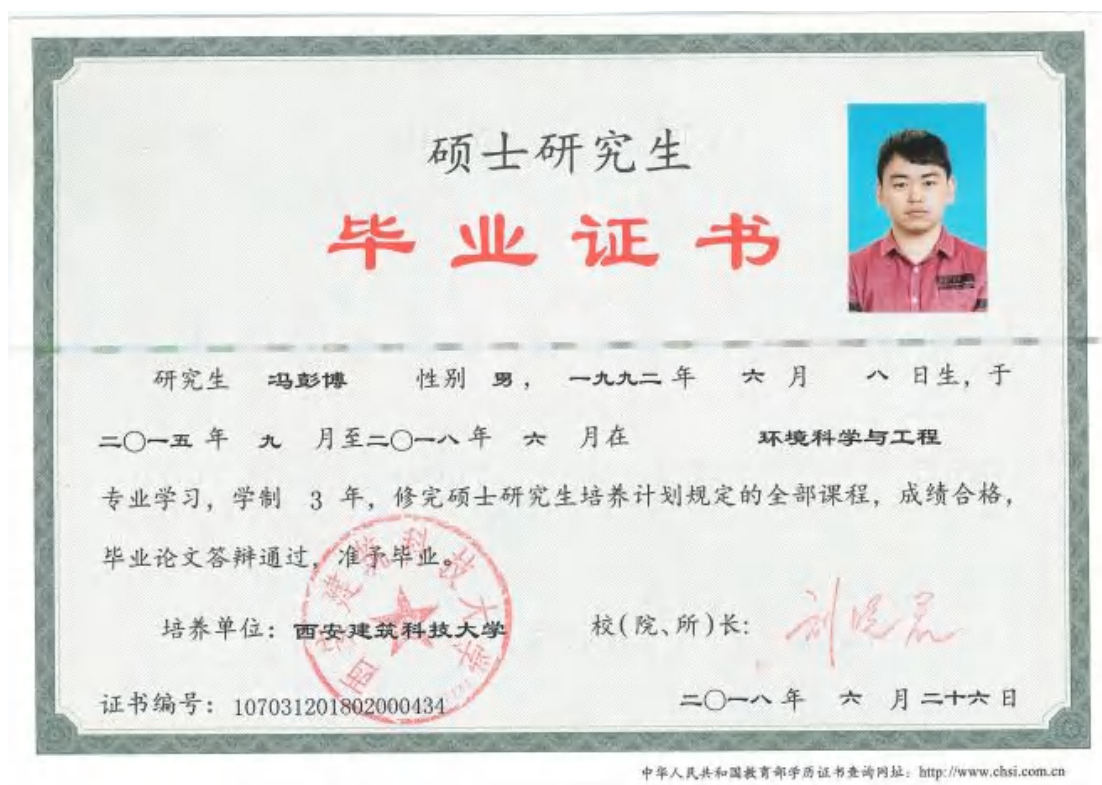 硕士研究生
毕业证书
研究生 冯彭博 性别 男， 一九九二 年 六 月 八 日生，于
二〇一五 年 九 月至二〇一八 年 六 月在 环境科学与工程
专业学习，学制 3 年，修完硕士研究生培养计划规定的全部课程，成绩合格，
毕业论文答辩通过，准予毕业。
西安建筑科技大学
培养单位：西安建筑科技大学 校（院、所）长：刘晓君
证书编号：107031201802000434 二〇一八 年 六 月 二十六 日
中华人民共和国教育部学历证书查询网址：http://www.chsi.com.cn